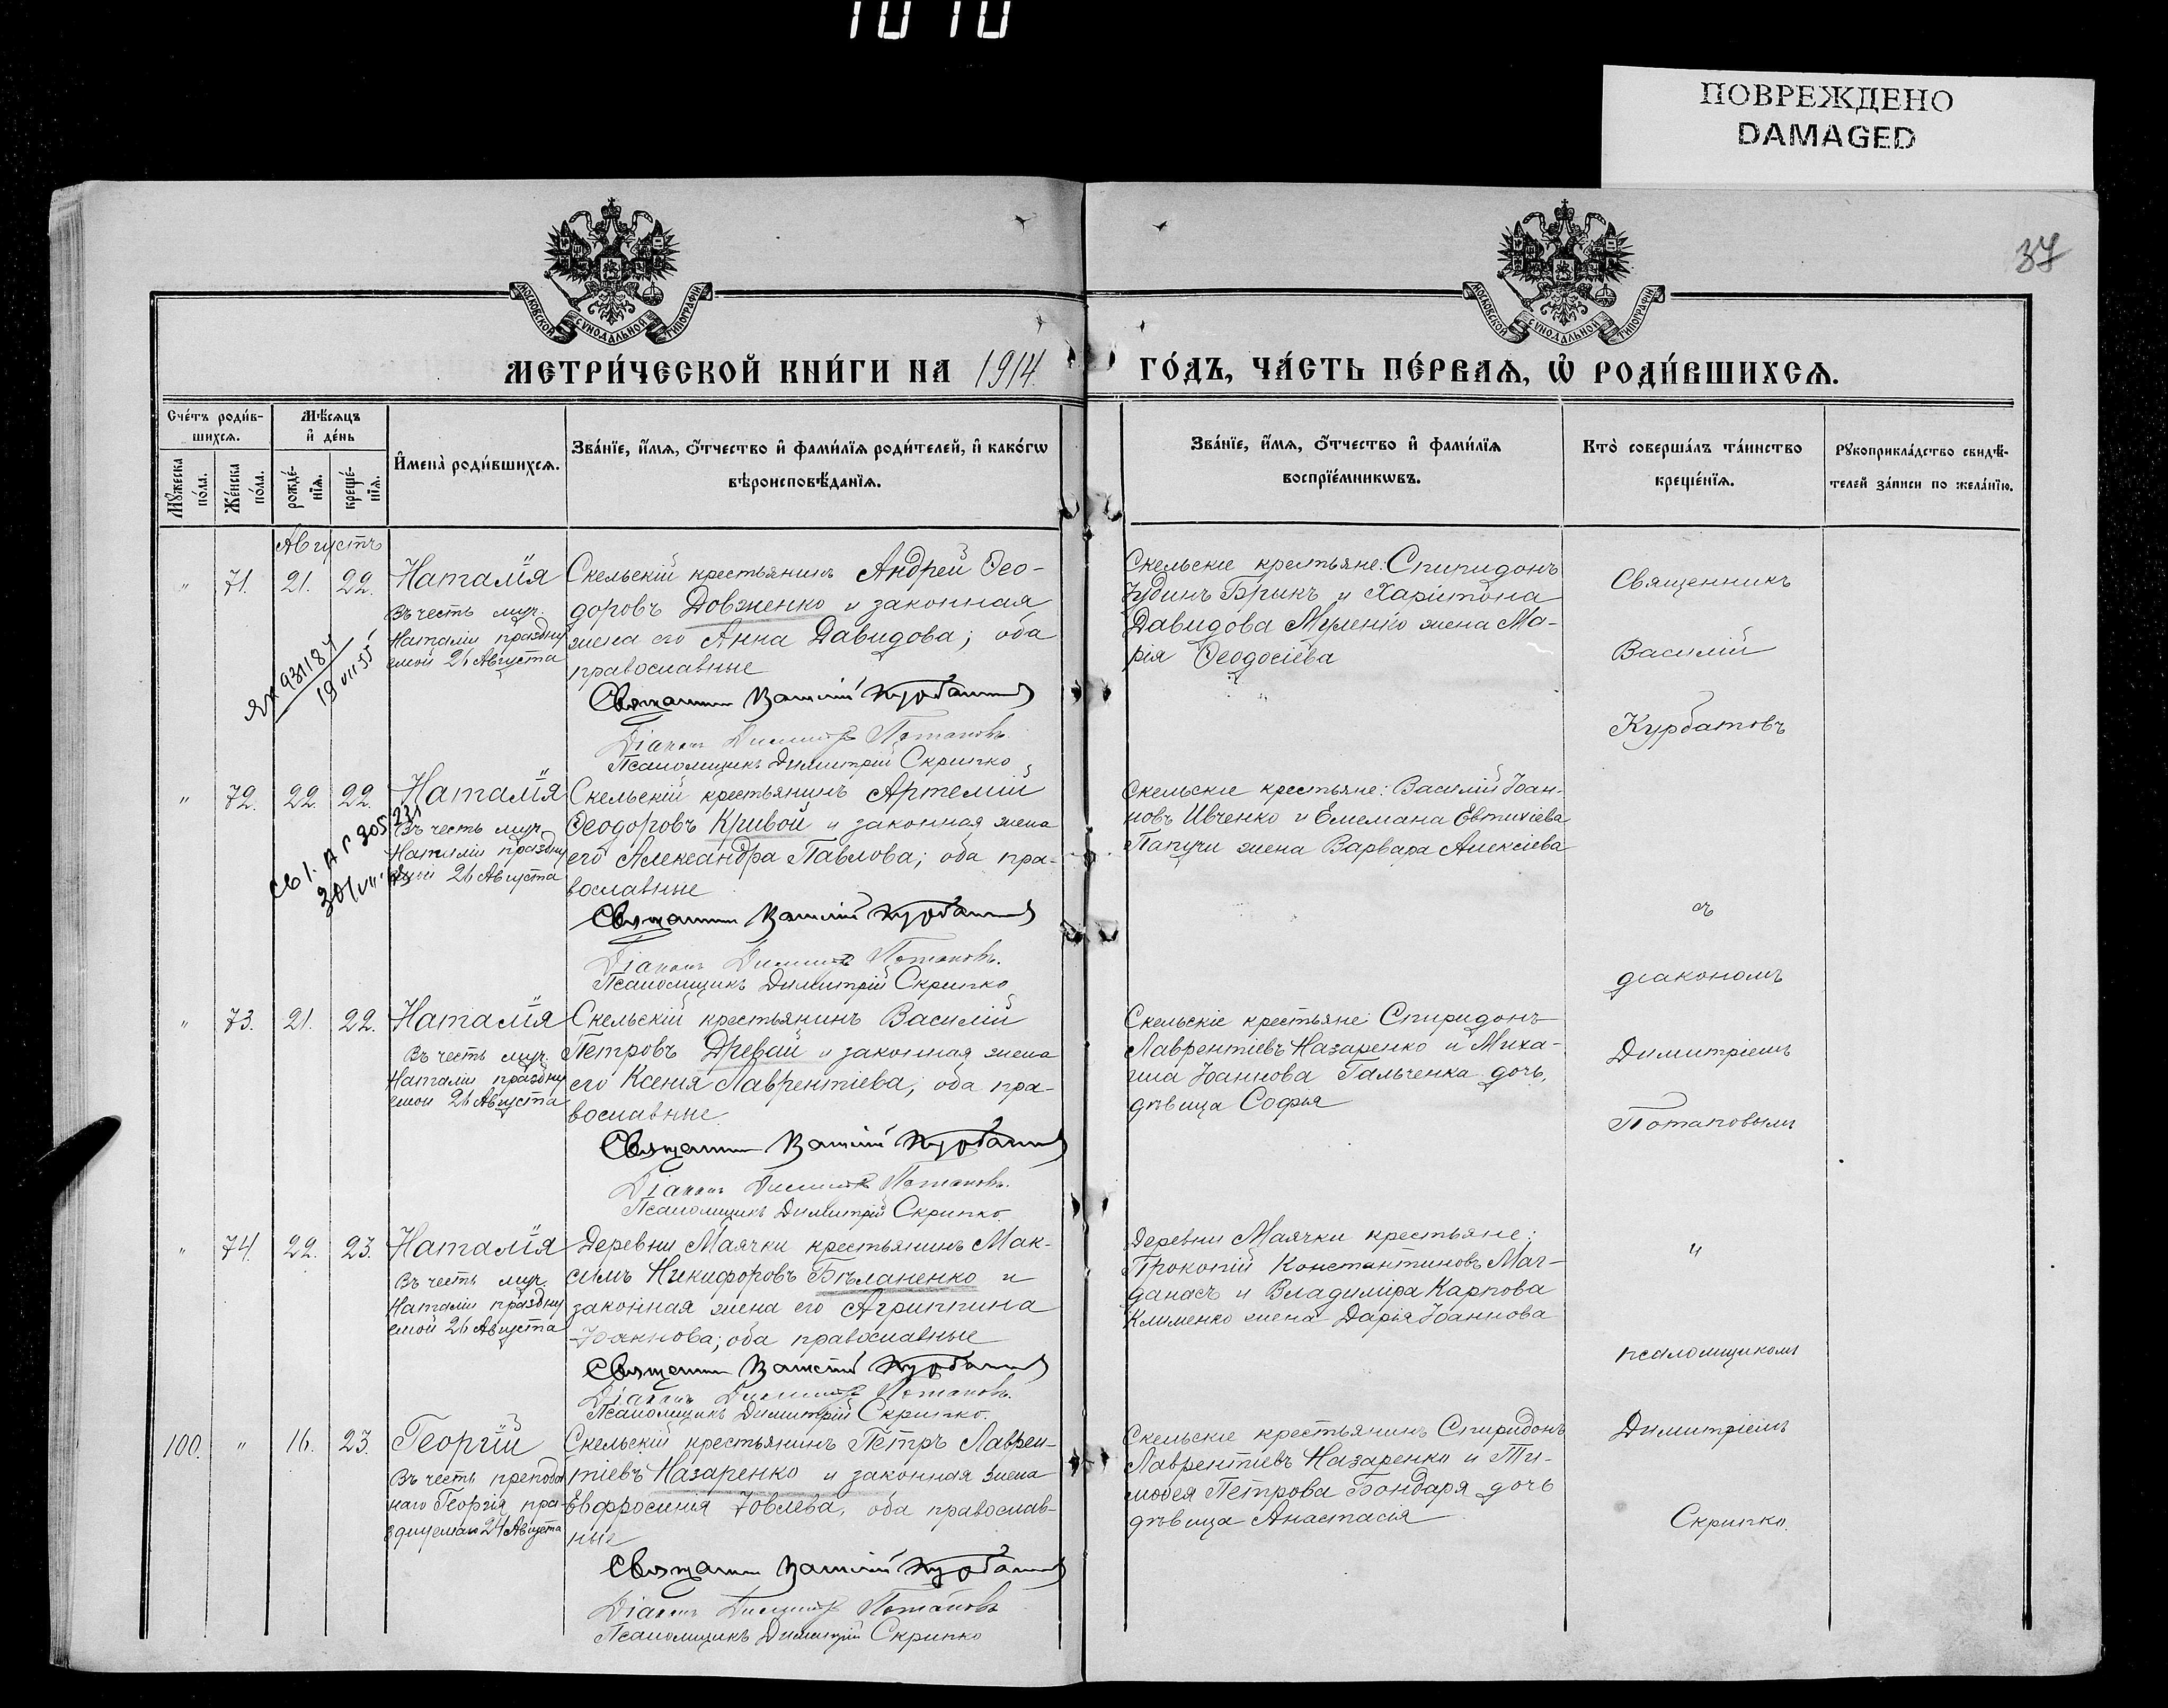 1010
ПОВРЕЖДЕНО
DAMAGED
37
МОСКОВСКОЙ СѴНОДАЛЬНОЙ ТИПОГРАФІИ
МОСКОВСКОЙ СѴНОДАЛЬНОЙ ТИПОГРАФІИ
МЕТРИ́ЧЕСКОЙ КНИ́ГИ НА 1914
ГО́ДЪ, ЧА́СТЬ ПЕ́РВАѦ, Ѡ҆ РОДИ́ВШИХСѦ.
Сче́тъ роди́в-
шихсѧ.
Мꙋ́жеска
по́ла.
Же́нска
по́ла.
Мѣ́сѧцъ
и҆ де́нь
рожде́-
нїѧ.
креще́-
нїѧ.
И҆мена̀ роди́вшихсѧ.
Зва́нїе, и҆́мѧ, ѻ҆́тчество и҆ фами́лїѧ роди́телей, и҆ како́гѡ
вѣроисповѣ́данїѧ.
Зва́нїе, и҆́мѧ, ѻ҆́тчество и҆ фами́лїѧ
воспрїе́мникѡвъ.
Кто̀ соверша́лъ та́инство
креще́нїѧ.
Рꙋкоприкла́дство свидѣ́-
телей за́писи по жела́нїю.
Августъ
" 71. 21. 22. Наталія
Въ честь муч.
Наталіи праздну
емой 26 Августа
931187
19 VII 55
Скельскій крестьянинъ Андрей Ѳео-
доровъ Довженко и законная
жена его Анна Давидова; оба
православные
Священникъ Василій Курбатовъ
Діаконъ Димитрій Потаповъ.
Псаломщикъ Димитрій Скрипко
Скельскіе крестьяне: Спиридонъ
Брикъ и Харитона
Давидова Муленко жена Ма-
рія Ѳеодосіева
Священникъ
Василій
Курбатовъ
" 72. 22. 22. Наталія
Въ честь муч.
Наталіи праздну
емой 26 Августа
Скельскій крестьянинъ Артемій
Ѳеодоровъ Кривой и законная жена
его Александра Павлова; оба пра-
вославные
Священникъ Василій Курбатовъ
Діаконъ Димитрій Потаповъ.
Псаломщикъ Димитрій Скрипко
Скельскіе крестьяне: Василій Іоан-
новъ Ивченко и Емеліана Евтихіева
Папучи жена Варвара Алексіева
съ
діакономъ
" 73. 21. 22. Наталія
Въ честь муч.
Наталіи праздну
емой 26 Августа
Скельскій крестьянинъ Василій
Петровъ Древай и законная жена
его Ксенія Лаврентіева; оба пра-
вославные
Священникъ Василій Курбатовъ
Діаконъ Димитрій Потаповъ.
Псаломщикъ Димитрій Скрипко.
Скельскіе крестьяне: Спиридонъ
Лаврентіевъ Назаренко и Миха-
ила Іоаннова Гальченка дочь,
дѣвица Софья
Димитріемъ
Потаповымъ
" 74. 22. 23. Наталія
Въ честь муч.
Наталіи праздну
емой 26 Августа
Деревни Маячки крестьянинъ Мак-
симъ Никифоровъ Бѣланенко и
законная жена его Агриппина
Іоаннова; оба православные
Священникъ Василій Курбатовъ
Діаконъ Димитрій Потаповъ.
Псаломщикъ Димитрій Скрипко.
Деревни Маячки крестьяне:
Прокопій Константиновъ Маг-
данасъ и Владиміра Карпова
Клименко жена Дарія Іоаннова
и
псаломщикомъ
100. " 16. 23. Георгій
Въ честь преподоб
наго Георгія пра-
зднуемаго 24 Августа
Скельскій крестьянинъ Петръ Лаврен-
тіевъ Назаренко и законная жена
Евфросинія Іовлева, оба православ-
ные
Священникъ Василій Курбатовъ
Діаконъ Димитрій Потаповъ
Псаломщикъ Димитрій Скрипко
Скельскіе крестьянинъ Спиридонъ
Лаврентіевъ Назаренко и Ти-
моѳея Петрова Бондаря дочь
дѣвица Анастасія
Димитріемъ
Скрипко.